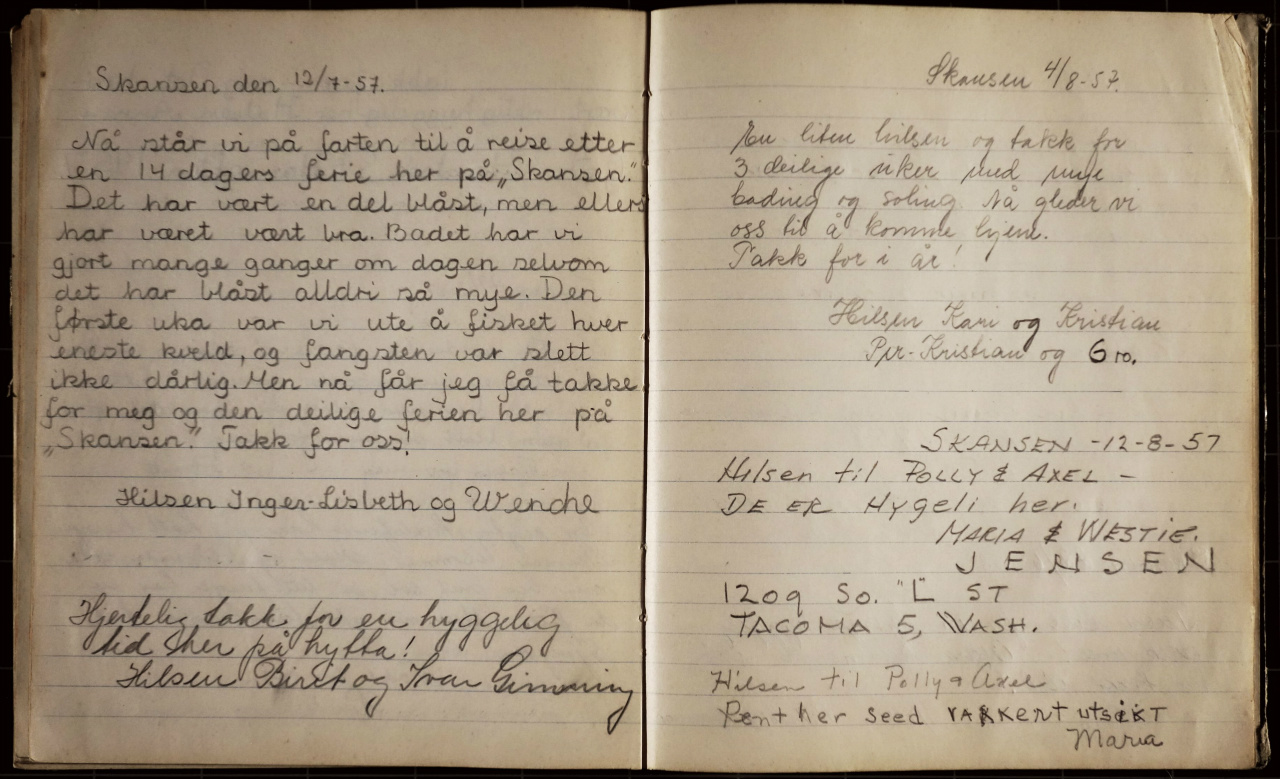 Skansen den 12/7-57.
Nå står vi på farten til å reise etter
en 14 dagers ferie her på „Skansen."
Det har vært en del blåst, men ellers
har været vært bra. Badet har vi
gjort mange ganger om dagen selvom
det har blåst alldri så mye. Den
første uka var vi ute å fisket hver
eneste kveld, og fangsten var slett
ikke dårlig. Men nå får jeg få takke
for meg og den deilige ferien her på
„Skansen." Takk for oss!
Hilsen Inger-Lisbeth og Wenche
Hjertelig takk for en hyggelig
tid her på hytta!
Hilsen Biret og Ivar
Skansen 4/8-57.
En liten hilsen og takk for
3 deilige uker med mye
bading og soling. Nå gleder vi
oss til å komme hjem.
Takk for i år!
Hilsen Kari og Kristian
Per-Kristian og
SKANSEN -12-8-57
Hilsen til POLLY & AXEL –
DE ER Hygeli her.
MARIA & WESTIE.
JENSEN
1209 So. "L" ST
TACOMA 5, WASH.
Hilsen til Polly & Axel
Pent her seed VAKKERT UTSIKT
Maria